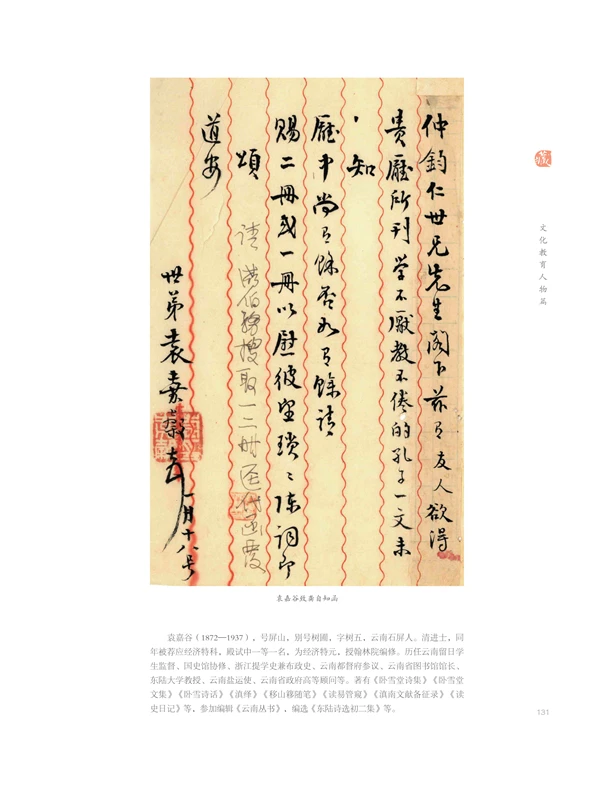 仲钧仁世兄先生阁下兹有友人欲得
贵厅所刊学不厌教不倦的孔子一文未
知
厅中尚有馀否如有馀请
赐二册或一册以慰彼望琐〻陈词即
颂
道安
世弟袁嘉谷 一月十八号
搜取一二册
文化教育人物篇
袁嘉谷致龚自知函
袁嘉谷（1872—1937），号屏山，别号树圃，字树五，云南石屏人。清进士，同
年被荐应经济特科，殿试中一等一名，为经济特元，授翰林院编修。历任云南留日学
生监督、国史馆协修、浙江提学史兼布政史、云南都督府参议、云南省图书馆馆长、
东陆大学教授、云南盐运使、云南省政府高等顾问等。著有《卧雪堂诗集》《卧雪堂
文集》《卧雪诗话》《滇绎》《移山簃随笔》《读易管窥》《滇南文献备征录》《读
史日记》等，参加编辑《云南丛书》，编选《东陆诗选初二集》等。
131